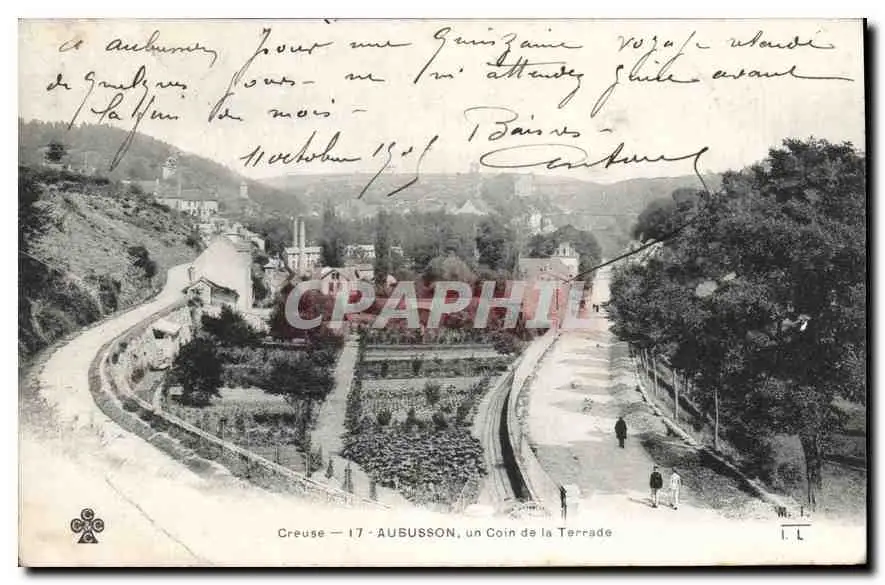 a aubusson pour une quinzaine voyage retardé
de quelques jours - ne m'attendez guère avant
la fin du mois -
Baisers
11 octobre 1905
CAPHIL
Creuse - 17 - AUBUSSON, un Coin de la Terrade
M. T.
I. L
C C C C